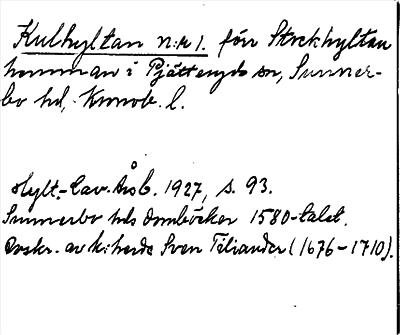 Kulhyltan n:r 1. förr Stockhyltan
hemman i Pjätteryds sn, Sunner-
bo hd, Kronob. l.
Hylt.-Cav. Årsb. 1927, s. 93.
Sunnerbo hds domböcker 1580-talet.
Avskr. av k:herde Sven Tiliander (1676-1710).